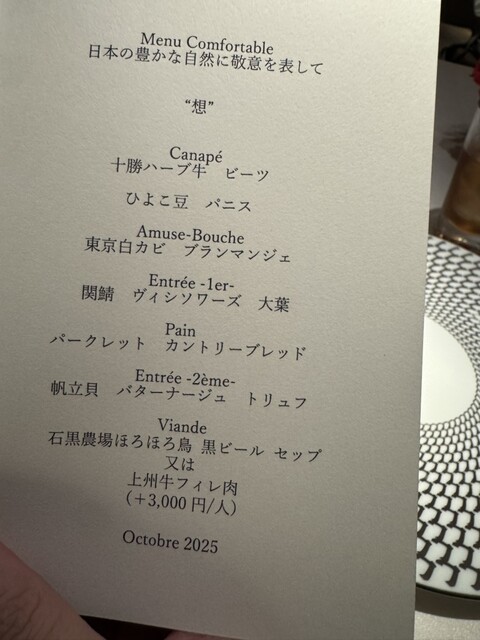 Menu Comfortable
日本の豊かな自然に敬意を表して
“想”
Canapé
十勝ハーブ牛　ビーツ
ひよこ豆　パニス
Amuse-Bouche
東京白カビ　ブランマンジェ
Entrée -1er-
関鯖　ヴィシソワーズ　大葉
Pain
パークレット　カントリーブレッド
Entrée -2ème-
帆立貝　バターナージュ　トリュフ
Viande
石黒農場ほろほろ鳥 黒ビール セップ
又は
上州牛フィレ肉
（＋3,000 円/人）
Octobre 2025